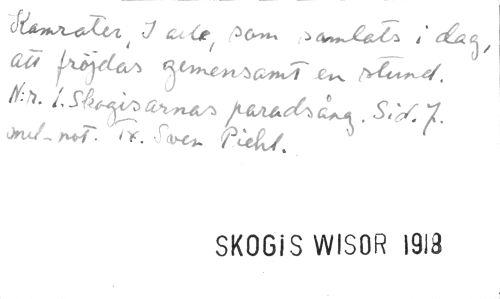 Kamrater, I alla, som samlats i dag,
att fröjdas gemensamt en stund.
N:r. 1. Skogisarnas paradsång. Sid. 7.
mel-not. Tx. Sven Piehl.
SKOGIS WISOR 1918